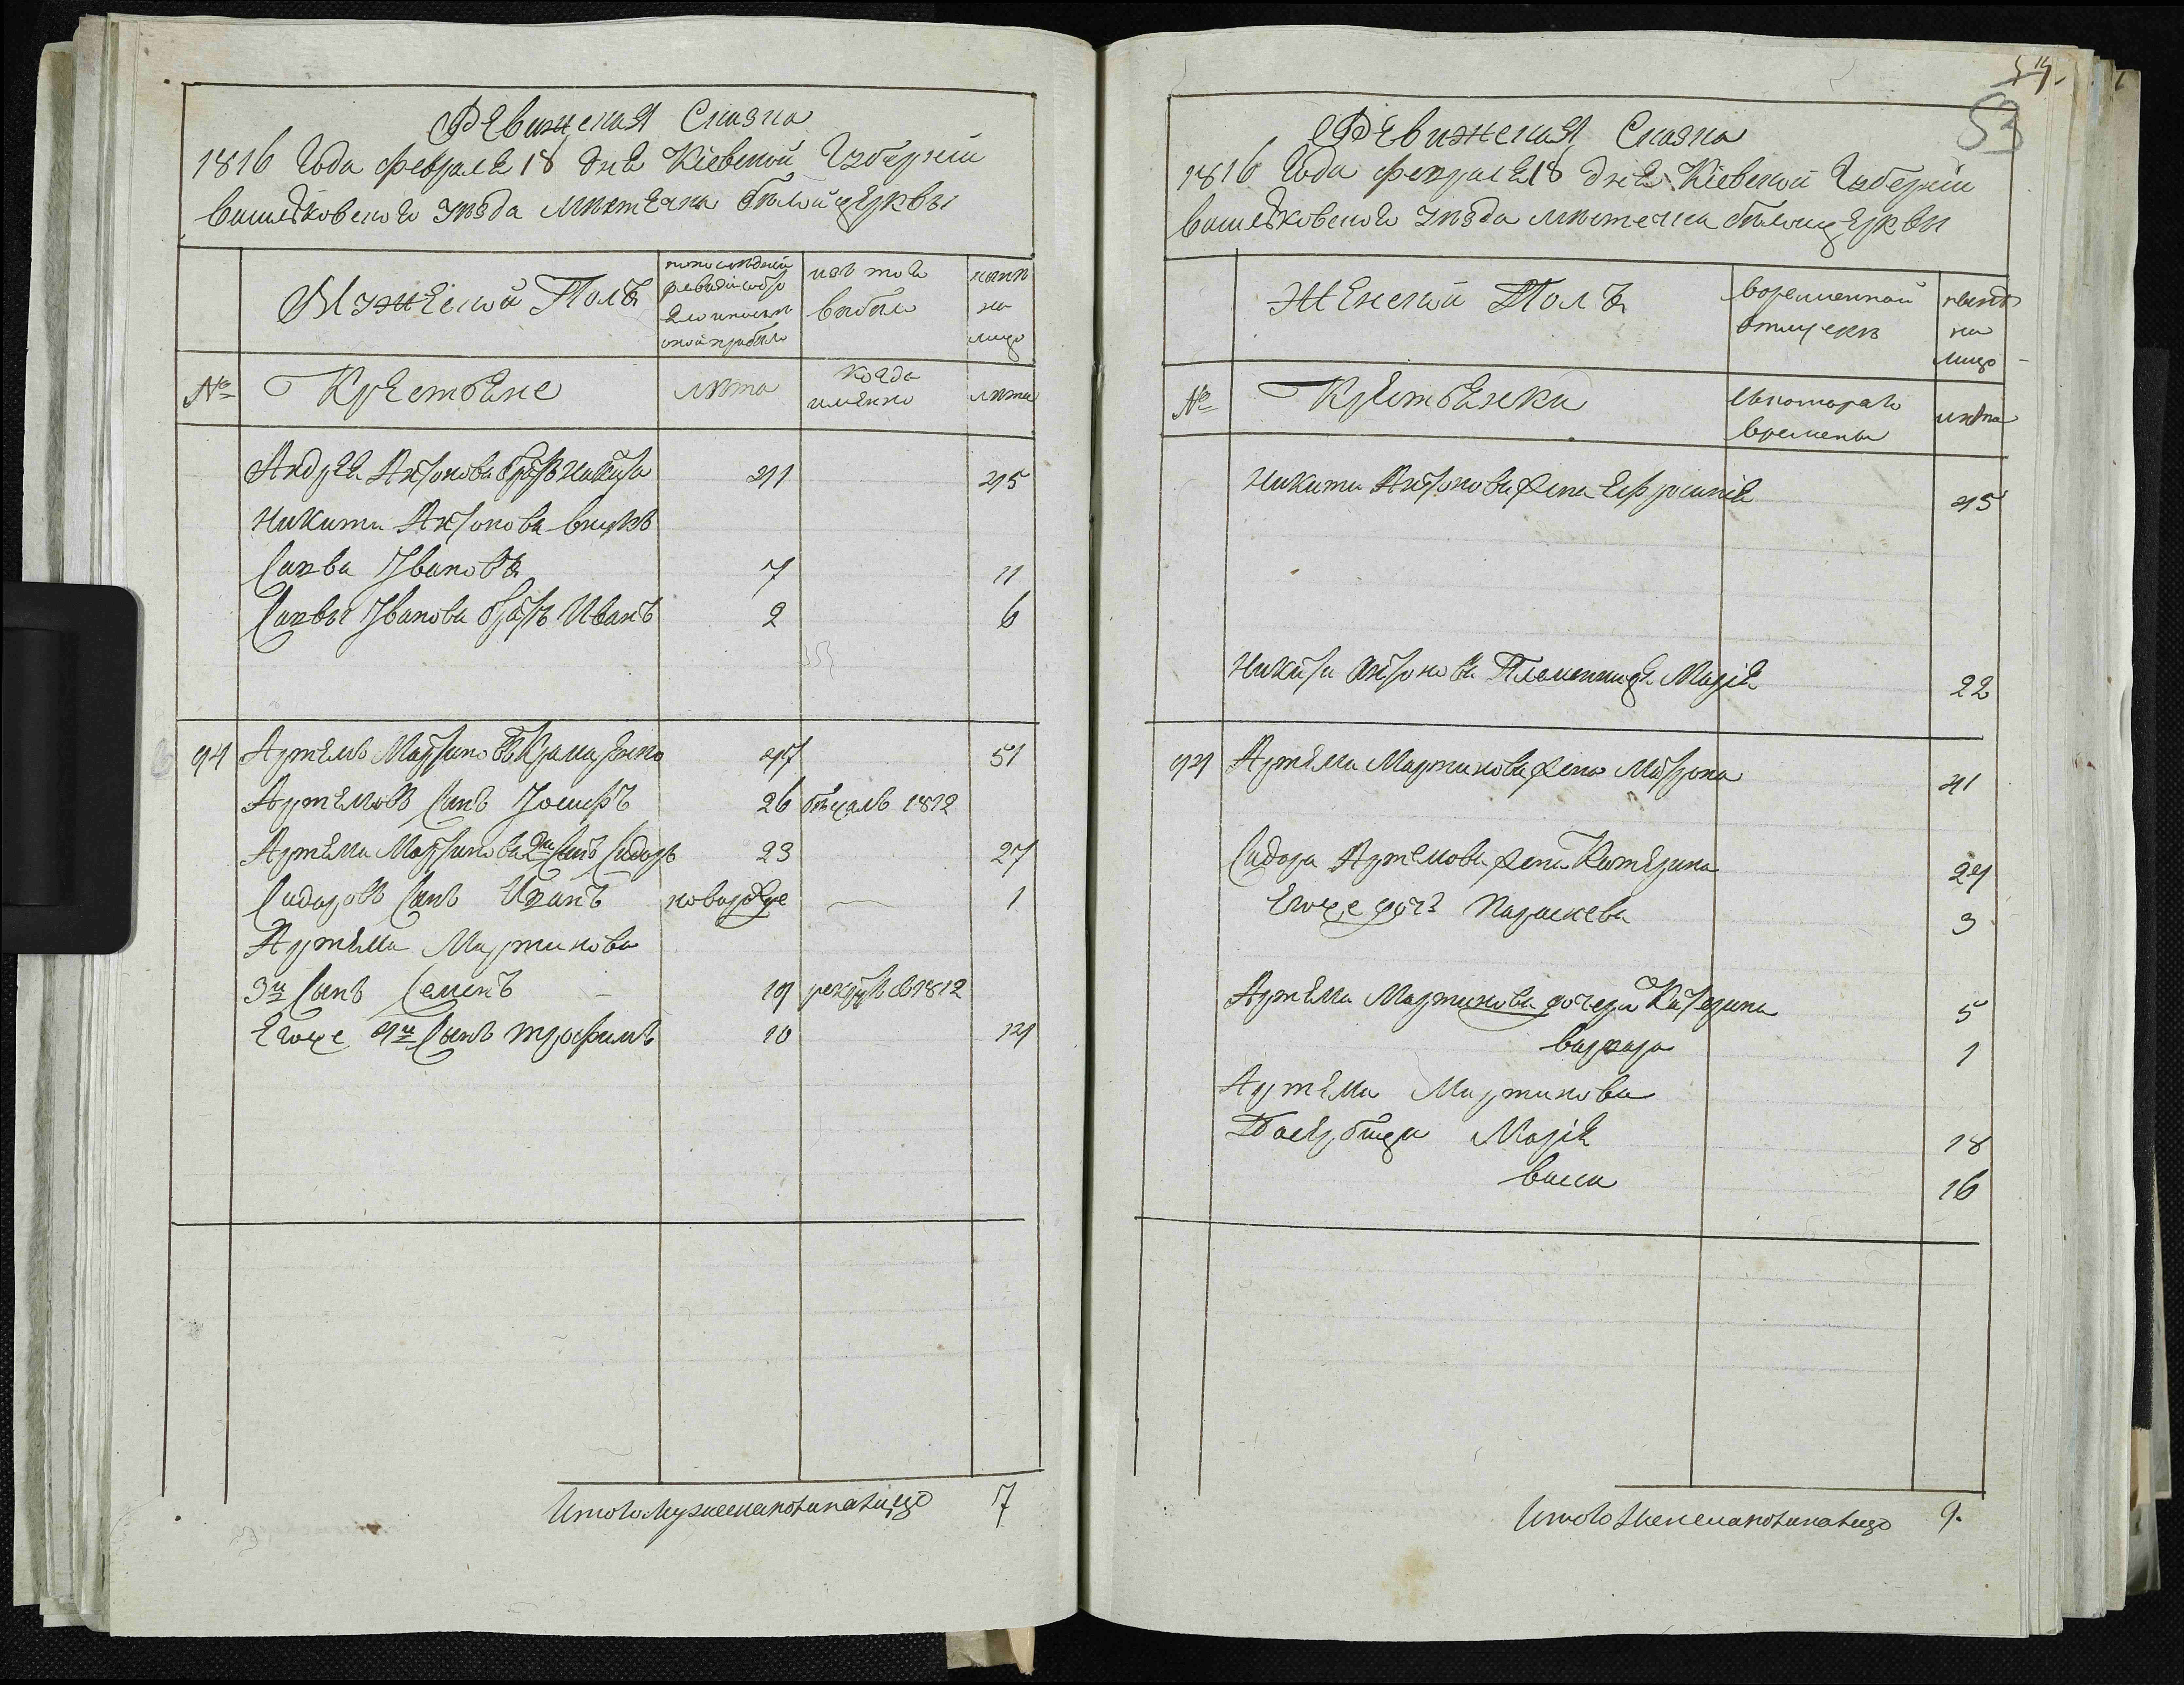 Ревижская Сказка
1816 Года февраля 18 дня Кіевской Губерніи
васильковского уезда местечка белойцеркви
Мужеской Полъ
по последней ревизіи состояло и после оной прибыло
изъ того выбыло
ныне на лицо
№
Крестьяне
лета
когда именно
лета
Андрея Антонова братъ Никита 41 45
Никити Антонова внукъ
Савва Ивановъ 7 11
Саввы Иванова братъ Иванъ 2 6
94 Артемъ Мартиновъ Крамаренко 47 51
Артемовъ Синъ Іосифъ 26 бежалъ 1812
Артема Мартинова 2й Синъ Сидоръ 23 27
Сидоровъ Синъ Иванъ новорожде 1
Артема Мартинова
3й Сынъ Семенъ 19 рекрут въ 1812
Егоже 4й Сынъ трофимъ 10 14
Итого мужеска пола на лицо 7
54.
53
Ревижская Сказка
1816 Года февраля 18 дня Кіевской Губерніи
васильковского уезда местечка белоицеркви
Женской Полъ
во временной отлучке
ныне на лицо
№
Крестьянки
скоторого времены
лета
Никити Антонова жена Ефросинія 45
Никити Антонова Племенница Марія 22
94 Артема Мартинова жена Матрона 41
Сидора Артемова жена Катерина 24
Егоже дочъ Параскева 3
Артема Мартинова дочери Катерина 5
варвара 1
Артема Мартинова
Пасербици Марія 18
васса 16
Итого женска пола на лицо 9.